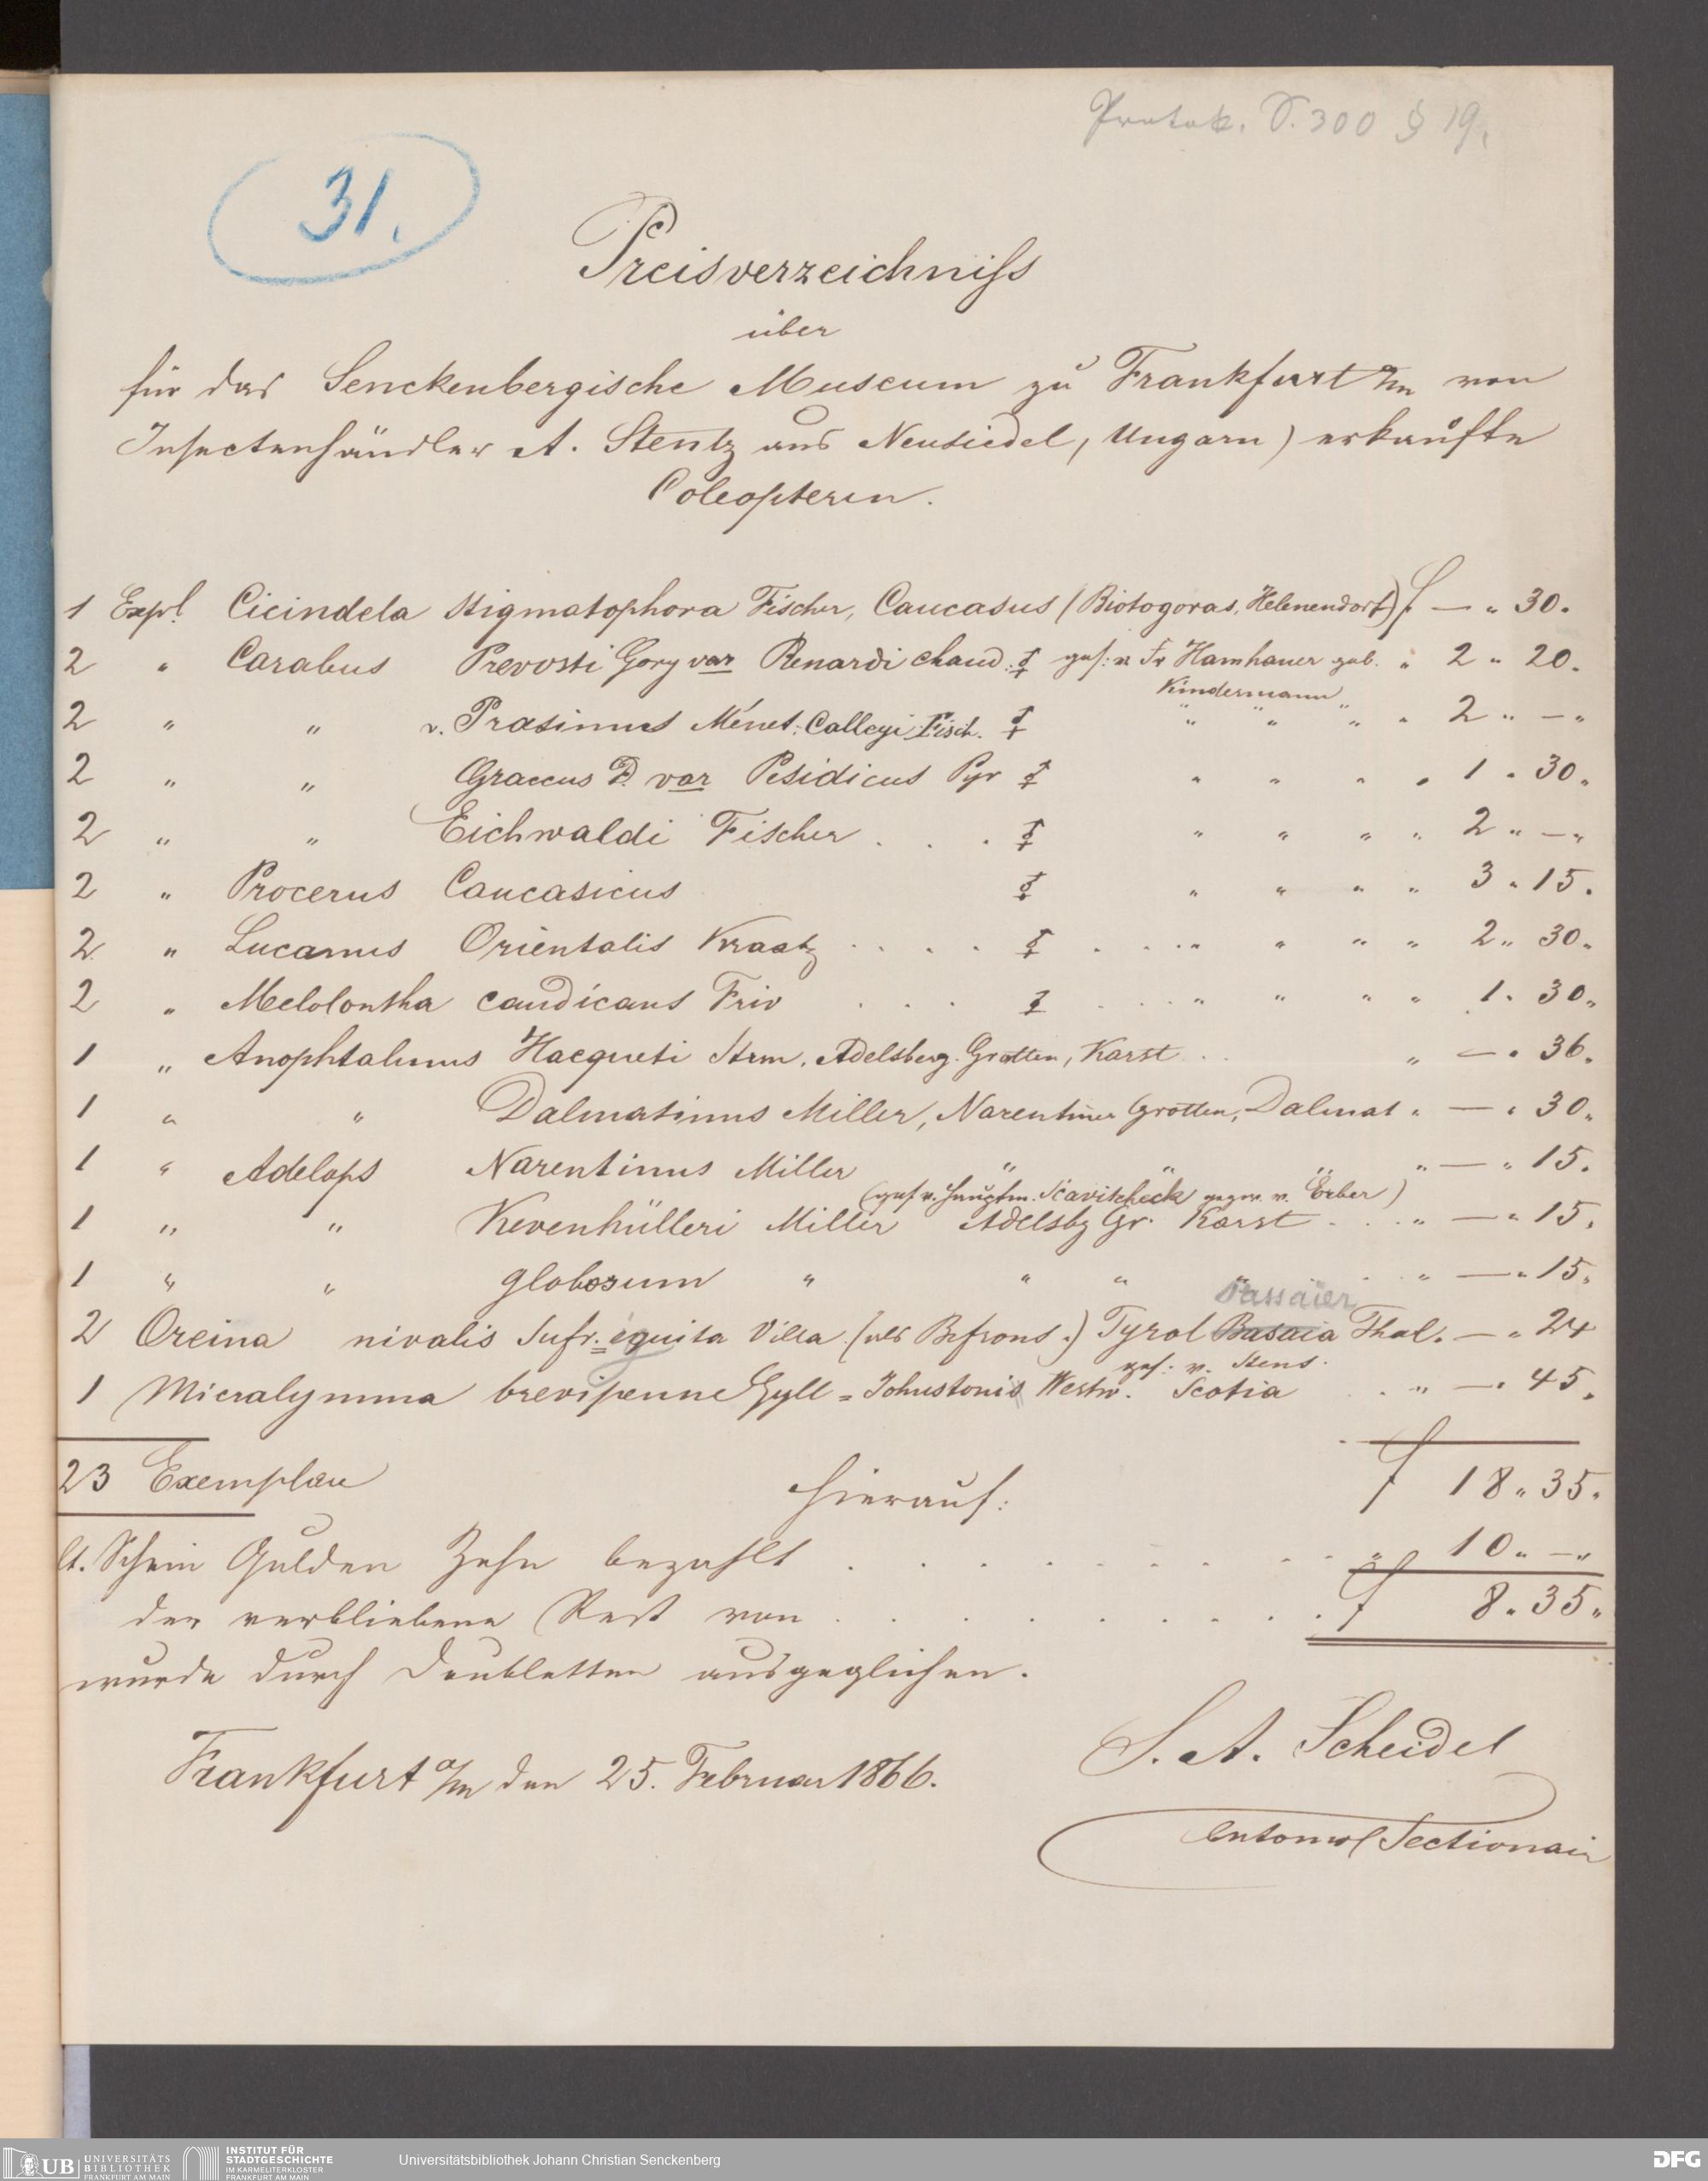 Protok. S. 300 § 19.
31.
Preisverzeichniss
über
für das Senckenbergische Museum zu Frankfurt a/m von
Insectenhändler A. Stentz aus Neusiedel, Ungarn) erkaufte
Coleopteren.
1 Expl. Cicindela stigmatophora Fischer, Caucasus (Biotogoras, Helenendorf) f — „ 30.
2 „ Carabus Prevosti Gory var Renardi Chaud. ⚥ ges: v Fr Hamhauer geb. „ 2 „ 20.
Kindermann
2 „ „ v. Prasinus Ménet. Calleyi Fisch. ⚥ „ „ „ „ 2 „ — „
2 „ „ Graecus D. var Pisidicus Pyr ⚥ „ „ „ „ 1 „ 30 „
2 „ „ Eichwaldi Fischer . . . ⚥ „ „ „ „ 2 „ — „
2 „ Procerus Caucasicus ⚥ „ „ „ „ 3 „ 15.
2 „ Lucanus Orientalis Kraatz . . . . ⚥ . . . „ „ „ „ 2 „ 30 „
2 „ Melolontha candicans Friv . . . ⚥ . . . „ „ „ „ 1. 30 „
1 „ Anophtalmus Hacqueti Strm. Adelsberg. Grotten, Karst . . „ — „ 36.
1 „ „ Dalmatinus Miller, Narentiner Grotten, Dalmat „ — „ 30 „
1 „ Adelops Narentinus Miller „ „ „ „ — „ 15.
(ges v. Hauptm. v. Erber)
1 „ „ Kevenhülleri Miller Adelsbg Gr. Karst . . . „ — „ 15.
1 „ „ globosum „ „ „ „ . . „ — „ 15.
Passaier
2 Oreina nivalis Sufr. Villa (als Bifrons.) Tyrol Basaia Thal. — „ 24
ges: v. Stens.
1 Micralymma brevipenne Gyll = Johnstonis Westw. Scotia . . „ — . 45.
23 Exemplare f 18 „ 35.
Hierauf:
lt. Schein Gulden Zehn bezahlt . . . . . . . . „ 10 „ — „
der verbliebene Rest von . . . . . . . . f 8 „ 35 „
wurde durch Doubletten ausgeglichen.
S. A. Scheidel
Frankfurt a/m den 25. Februar 1866.
Entomol Sectionair
UB UNIVERSITÄTS
BIBLIOTHEK
FRANKFURT AM MAIN
INSTITUT FÜR
STADTGESCHICHTE
IM KARMELITERKLOSTER
FRANKFURT AM MAIN
Universitätsbibliothek Johann Christian Senckenberg
DFG